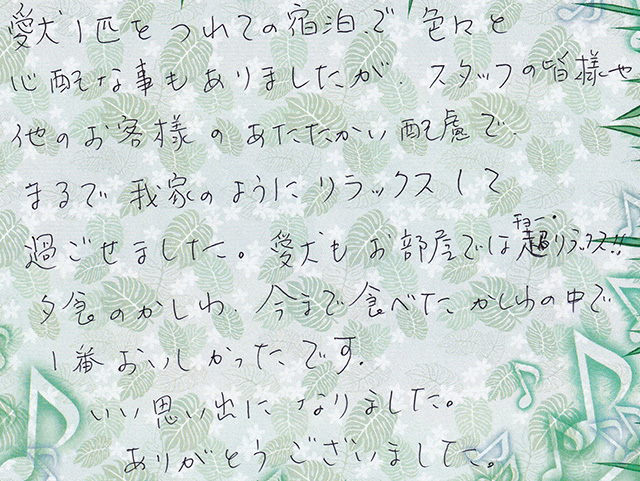 愛犬1匹をつれての宿泊で色々と
心配な事もありましたが、スタッフの皆様や
他のお客様のあたたかい配慮で、
まるで我家のようにリラックスして
過ごせました。愛犬もお部屋では超リラックス!!
チョー・
夕食のかしわ、今まで食べたかしわの中で
1番おいしかったです。
いい思い出になりました。
ありがとうございました。